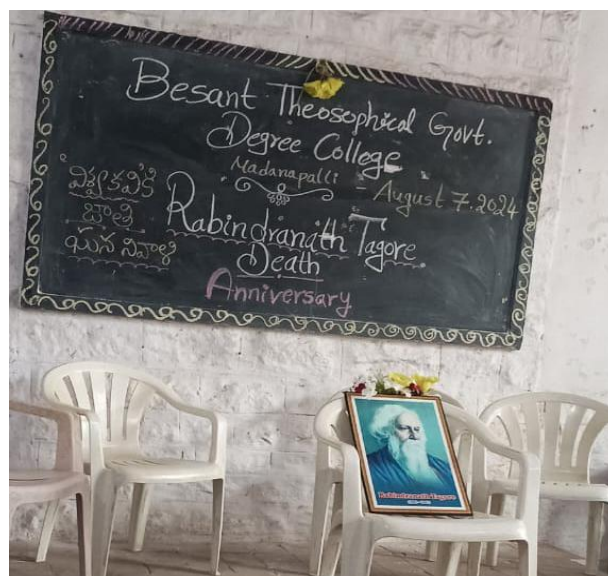 Besant Theosophical Govt.
Degree College
Madanapalli
- August 7. 2024
విశ్వకవికి
జాతి
ఘన నివాళి
Rabindranath Tagore
Death
Anniversary
Rabindranath Tagore